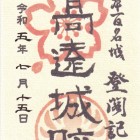 本百名城 登閣記
高遠城跡
令和五年七月十五日